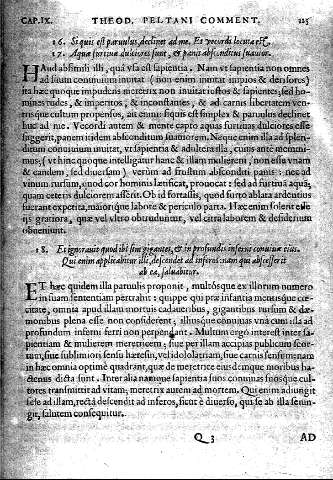 CAP. IX. THEOD. PELTANI COMMENT. 125
16. Si quis est paruulus, declinet ad me. Et vecordi locuta est,
17. Aquæ furtiuæ dulciores sunt, & panis absconditus suauior.
HAud absimili illi, quâ vsa est sapientia. Nam vt sapientia non omnes
ad suum conuiuium inuitat (non enim inuitat impios & derisores)
ita hæc quoque impudens meretrix non inuitat iustos & sapientes, sed ho-
mines rudes, & imperitos, & inconstantes, & ad carnis libertatem ven-
trisque cultum propensos, ait enim: siquis est simplex & paruulus declinet
huc ad me. Vecordi autem & mente capto aquas furtiuas dulciores esse
suggerit, panem itidem absconditum suauiorem. Neque enim illa ad splen-
didum conuiuium inuitat, vt sapientia & adultera illa, cuius ante memini-
mus; (vt hinc quoque intelligatur hanc & illam mulierem, non esse vnam
& eandem, sed diuersam) verùm ad frustum absconditi panis: nec ad
vinum rursum, quod cor hominis lætificat, prouocat: sed ad furtiua aquâ,
quam ceteris dulciorem asserit. Ob id fortassis, quod furto ablata ardentius
fuerant expetita, maiorique labore & periculo parta. Hæc enim solent esse
gratiora, quæ vel vltro obtruduntur, vel citra laborem & desiderium
obueniunt.
18. Et ignorauit quod ibi sint gigantes, & in profundis inferni conuiuæ eius.
Qui enim applicabitur illi, descendet ad inferos: nam qui abscesserit
ab ea, saluabitur.
ET hæc quidem illa paruulis proponit, multósque ex illorum numero
in suam sententiam pertrahit: quippe qui præ infantia mentisque cæ-
citate, omnia apud illam mortuis cadaueribus, gigantibus rursum & dæ-
monibus plena esse non considerent; illiusque conuiuas vnà cum illa ad
profundum inferni ferri non perpendant. Multum ergo interest inter sa-
pientiam & mulierem meretricem; siue per illam accipias publicum scor-
tum, siue sublimiori sensu hæresin, vel idololatriam, siue carnis sensum: nam
in hæc omnia optimè quadrant, quæ de meretrice eiusdemque moribus ha-
ctenus dicta sunt. Inter alia namque sapientia suos conuiuas suosque cul-
tores transmittit ad vitam; meretrix autem ad mortem. Qui enim adiungit
sese ad illam, rectà descendit ad inferos, sicut è diuerso, qui se ab illa seiun-
git, salutem consequitur.
Q 3 AD